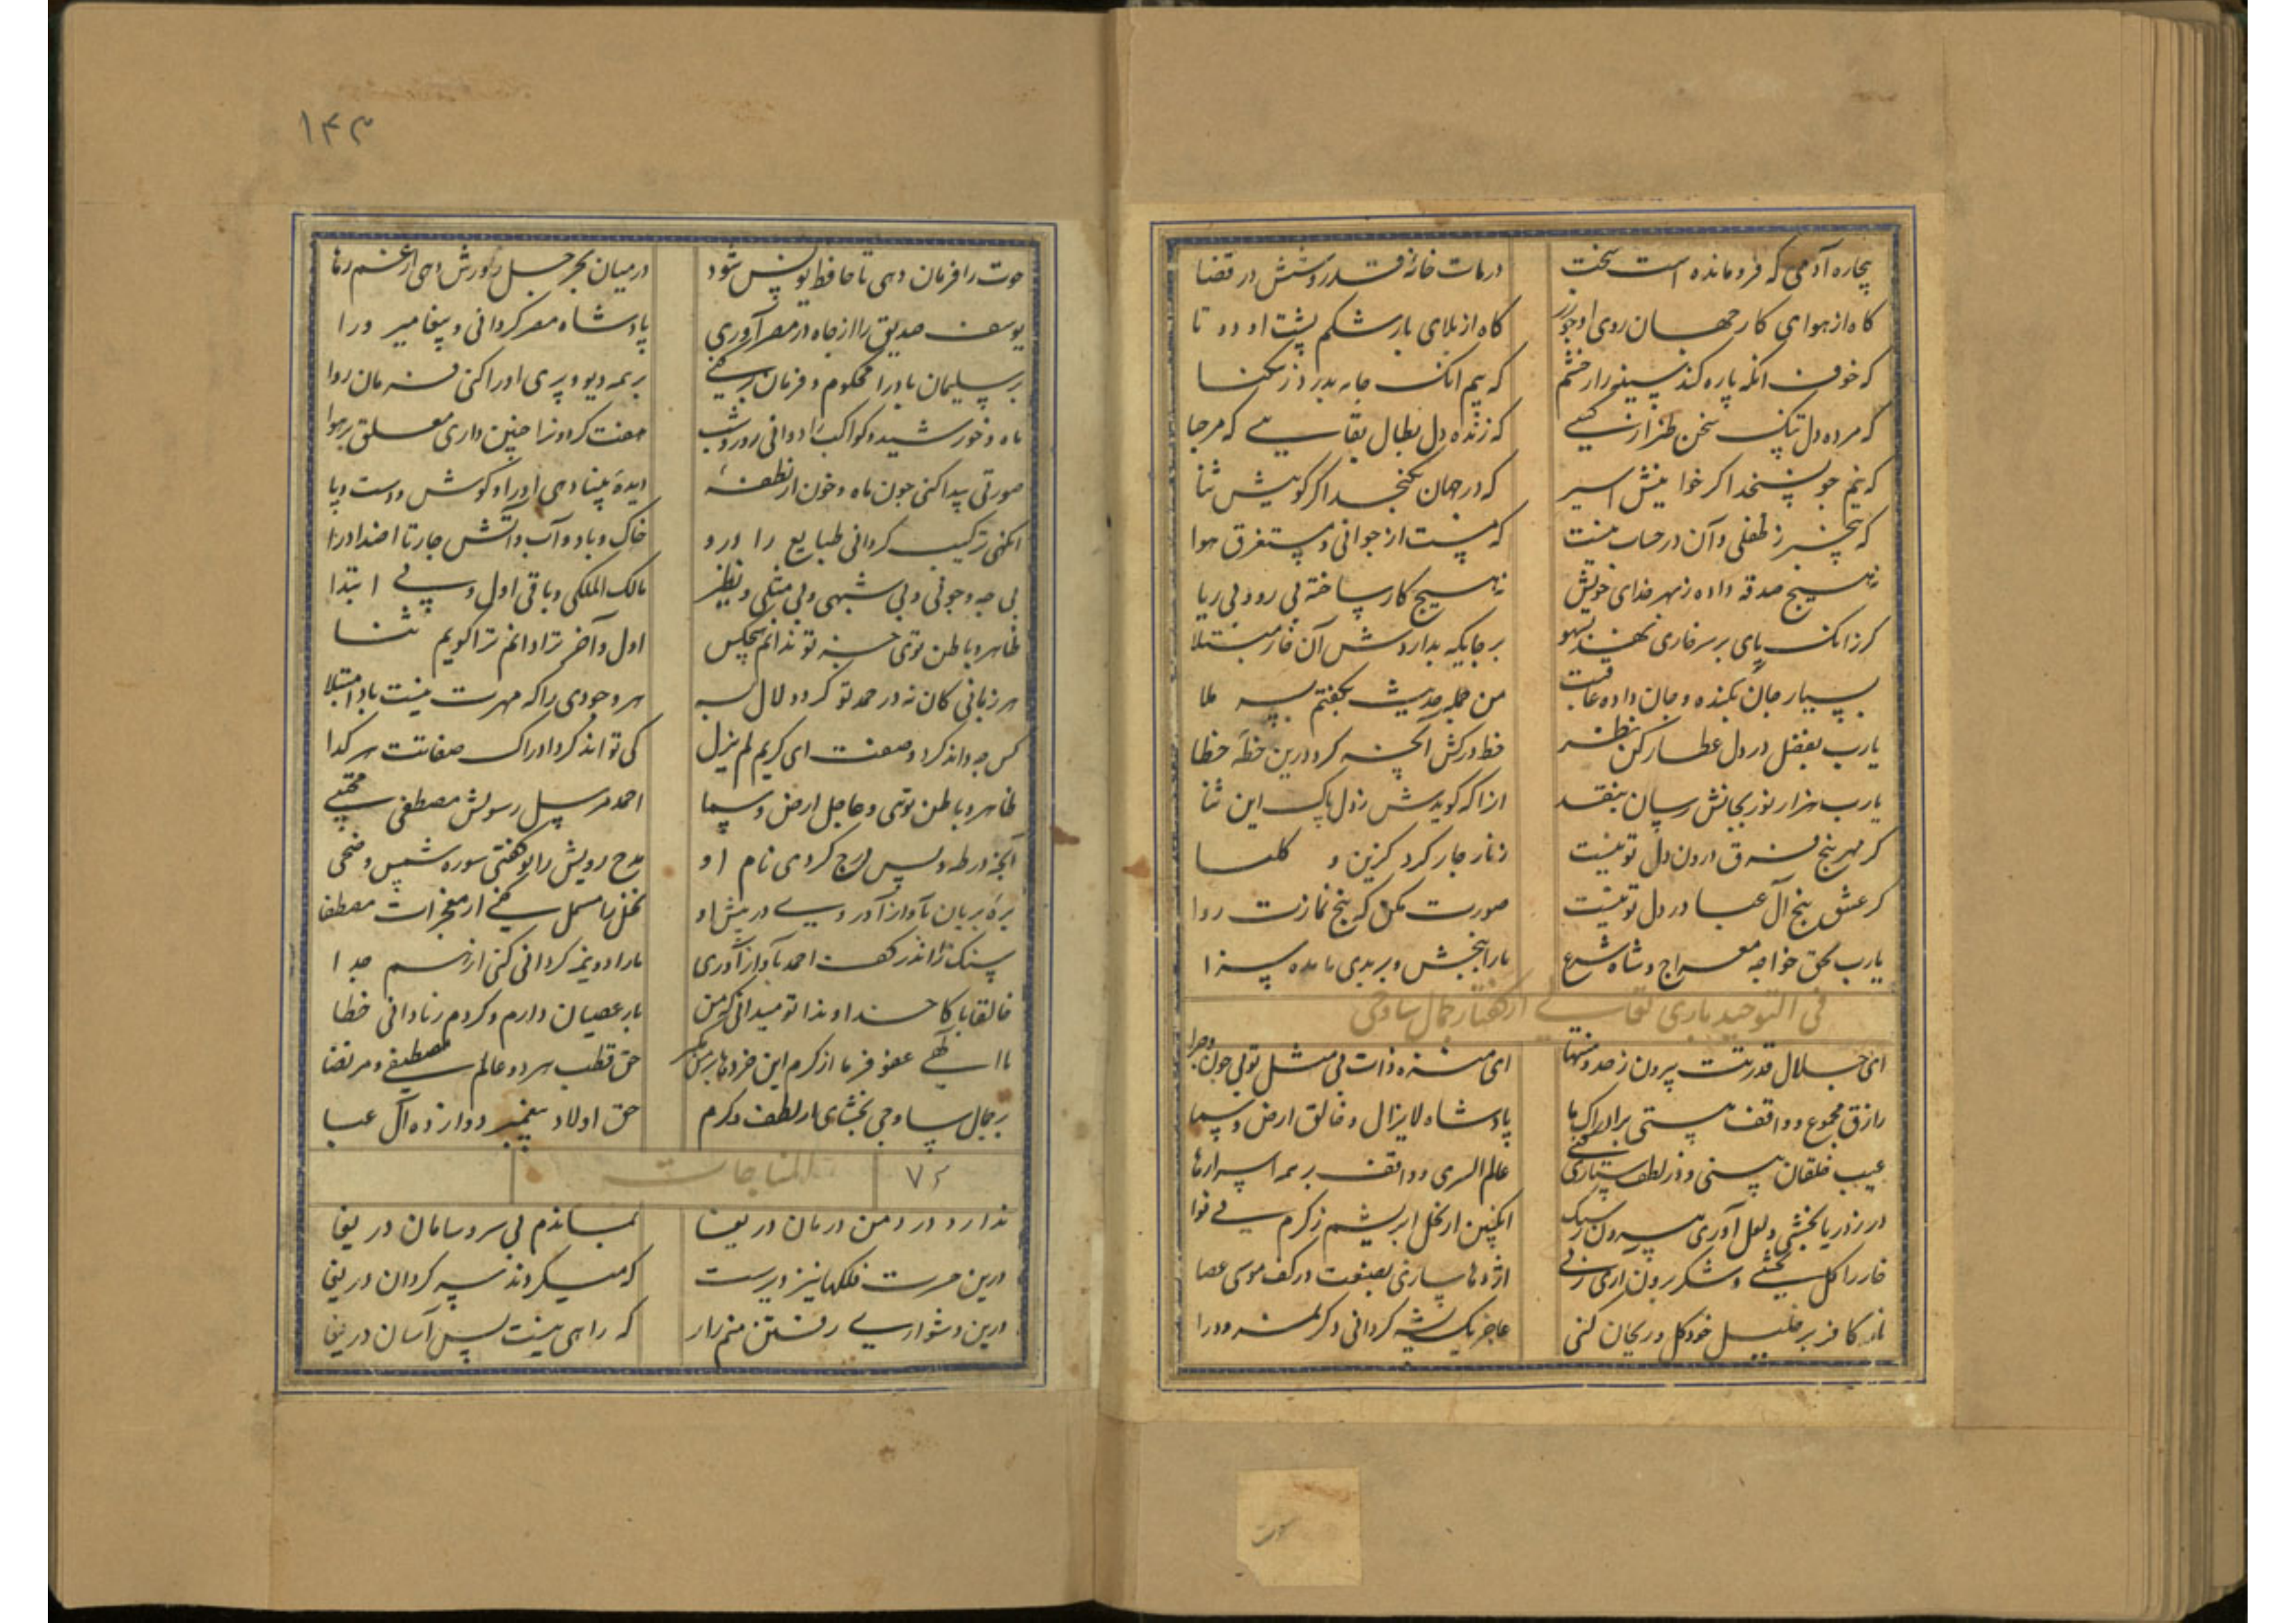 بیچاره آدمی که فرومانده است سخت
در مات خانهٔ قدر و شش در قضا
گاه از هوای کار جهان روی او چو زر
گاه از بلای بار شکم پشت او دو تا
که خوف انکه پاره کند سینه را ز خشم
که بیم انک جامه بدرد ز تنکنا
که مرده دل تنک سخن طنز از کسی
که زنده دل بطال بقایی که مرحبا
که نیم جو نسنجد اکر خوانیش اسیر
که در جهان نکنجد اکر کوییش ثنا
که بیخبر ز طفلی و آن در حساب نیست
که مست از جوانی و مستغرق هوا
نه هیچ صدقه داده ز بهر خدای خویش
نه هیچ کار ساخته بی روی بی ریا
کر زانک پای بر سر خاری نهد بسهو
بر جایکه بداردش آن خار مبتلا
بسیار جان بکنده و جان داده عاقبت
من جمله حدیث بکفتم بسر ملا
یارب بفضل در دل عطار کن نظر
خط درکش آنچه کرد درین خطه خطا
یارب هزار نور بجانش رسان بنقد
انرا که کویدش ز دل پاک این ثنا
کر مهر پنج فرق درون دل تو نیست
زنار چار کرد کزین و کلسا
کر عشق پنج آل عبا در دل تو نیست
صورت مکن که پنج نمازت روا
یارب بحق خواجه معراج و شاه شرع
ما را ببخش و بر بدی ما مده سزا
فی التوحید باری تعالی از کفتار جمال ساوجی
ای جلال قدرتت بیرون ز حد و منتها
ای منزه ذات بی مثل تو بی چون و چرا
رازق مجموع و واقف هستی بر ادراک ما
پادشاه لایزال و خالق ارض و سما
عیب خلقان بینی و در لطف ستاری کنی
عالم السری و واقف بر همه اسرارها
در ز دریا بخشی و لعل آوری بیرون ز سنک
انکبین از نخل ابریشم ز کرم بی نوا
خار را کل بخشی و شکر برون آری ز نی
اژدها سازی بصنعت در کف موسی عصا
نار کافر بر خلیل خود کل و ریحان کنی
عاجز یک پشه کردانی
۱۴۳
حوت را فرمان دهی تا حافظ یونس شود
در میان بحر جبل رکورش دهی از غم رها
یوسف صدیق را از چاه در مصر آوری
پادشاه مصر کردانی و پیغامبر ورا
بر سلیمان باد را محکوم و فرمان بر کنی
بر همه دیو و پری او را کنی فرمان روا
ماه و خورشید و کواکب را دوانی روز و شب
هفت کردون را چنین داری معلق بر هوا
صورتی پیدا کنی چون ماه و خون از نطفهٔ
دیدهٔ بینا دهی او را و کوش و دست و پا
انکهی ترکیب کردانی طبایع را درو
خاک و باد و آب و آتش چار تا اضداد را
بی چه و چونی و بی شبهی و بی مثلی و نظیر
مالک الملکی و باقی اول و بی ابتدا
ظاهر و باطن توی جز تو ندانم هیچکس
اول و آخر ترا دانم ترا کویم ثنا
هر زبانی کان نه در حمد تو کردد لال به
هر وجودی را که مهرت نیست بادا مبتلا
کس چه داند کرد وصفت ای کریم لم یزل
کی تواند کرد ادراک صفاتت هر کدا
ظاهر و باطن توی و جاعل ارض و سما
احمد مرسل رسولش مصطفی مجتبی
آنچه در طه و یس درج کردی نام او
مدح رویش را بو کفتی سوره شمس و ضحی
بره بریان بآواز آوری در پیش او
نخل را مسمل کنی از معجزات مصطفا
سنک را اندر کف احمد بآواز آوری
ماه را دو نیمه کردانی کنی از هم جدا
خالقا پاکا خداوندا تو میدانی که من
بار عصیان دارم و کردم ز نادانی خطا
یا الهی عفو فرما از کرم این جرمها بر من
حق قطب هر دو عالم مصطفی و مرتضا
بر جمال ساوجی بخشای از لطف و کرم
حق اولاد پیغمبر دوازده آل عبا
۷۶
المناجات
ندارد درد من درمان دریغا
بماندم بی سر و سامان دریغا
درین حسرت فلکها نیز دیرست
که میکردند سر کردان دریغا
درین دشواری رفتن منم زار
که راهی نیست بس آسان دریغا